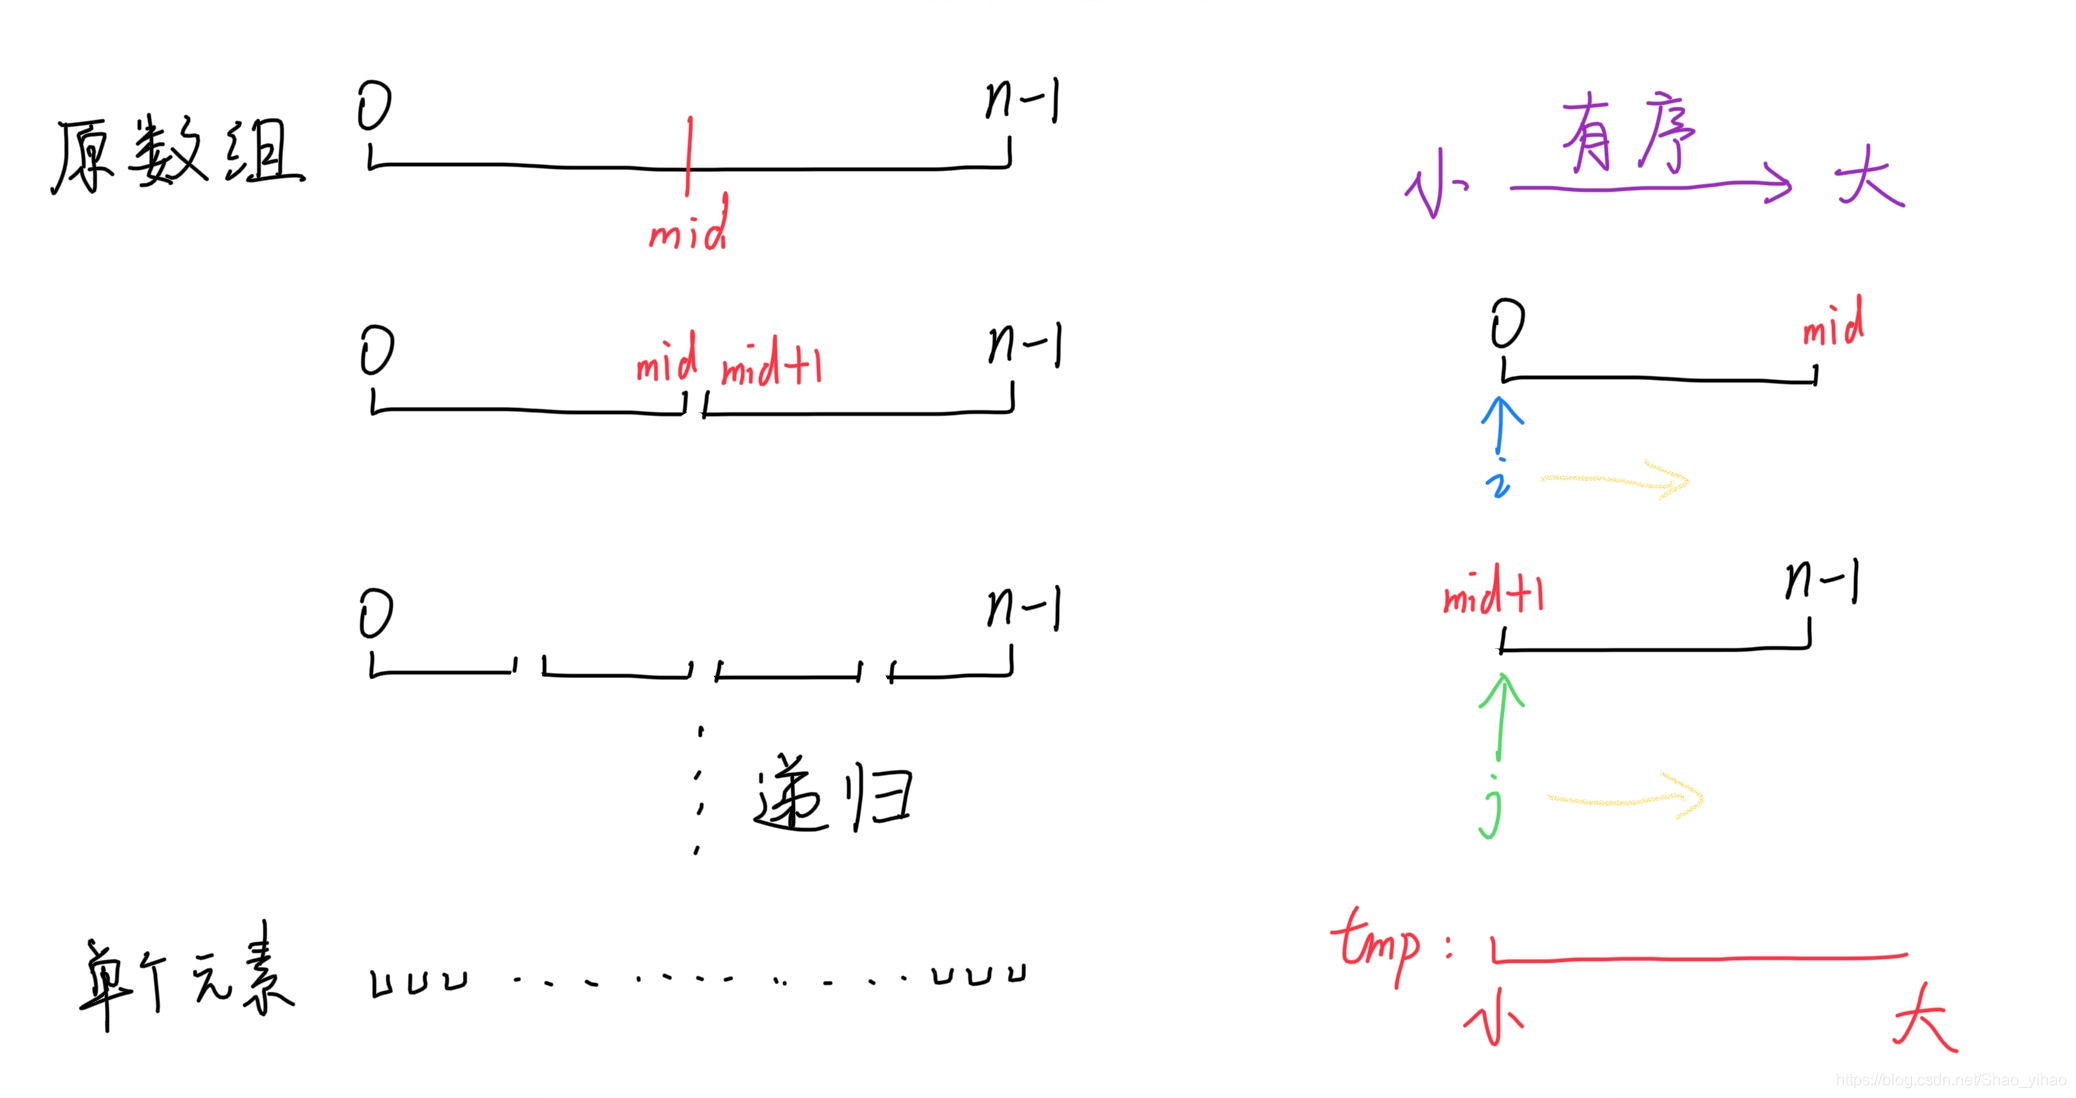 原数组
0 n-1
mid
0 mid mid+1 n-1
0 n-1
递归
单个元素
有序
小 大
0 mid
i
mid+1 n-1
j
tmp:
小 大
https://blog.csdn.net/Shao_yihao